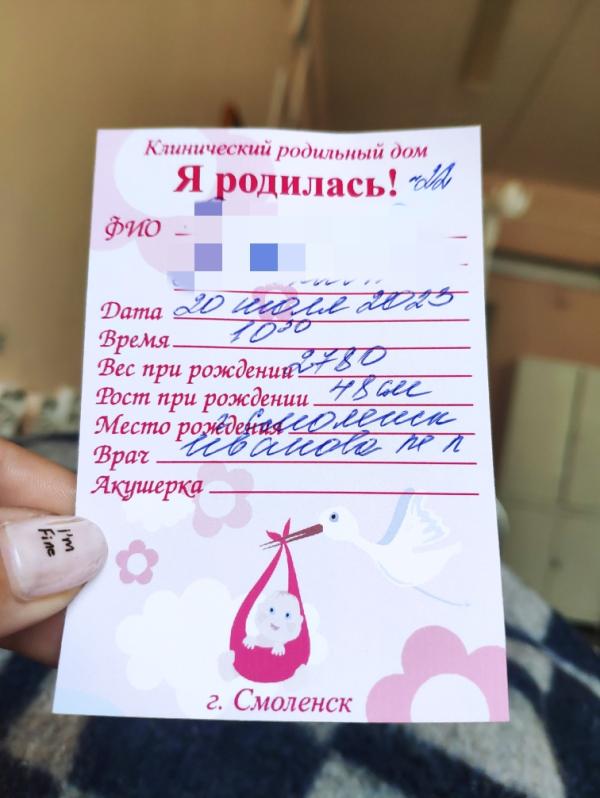 Клинический родильный дом
Я родилась! ~22
ФИО
Дата 20 июля 2023
Время 10³⁰
Вес при рождении 2780
Рост при рождении 48 см
Место рождения г. Смоленск
Врач Иванова
Акушерка
г. Смоленск
I'm
Fine